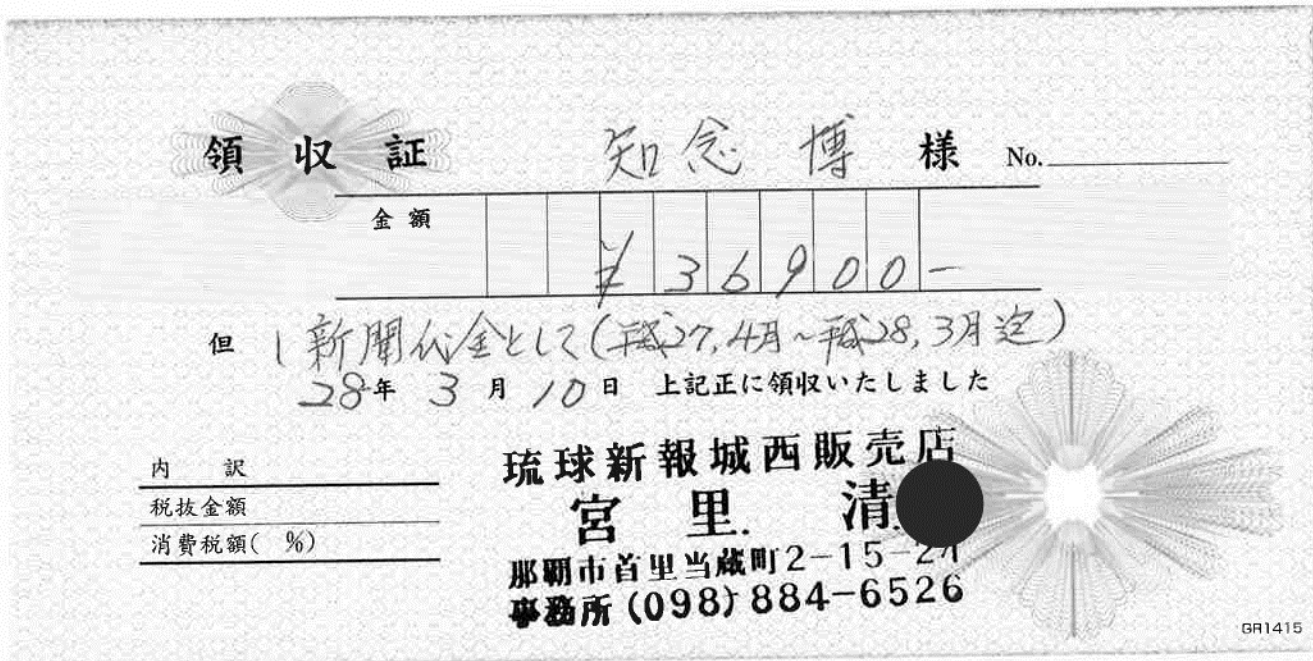 領収証 知念 博 様 No.
金額 ¥36900-
但 新聞代金として(平成27,4月~平成28,3月迄)
28年 3月 10日 上記正に領収いたしました
内訳
税抜金額
消費税額( %)
琉球新報城西販売店
宮里. 清.
那覇市首里当蔵町2-15-21
事務所(098)884-6526
GR1415